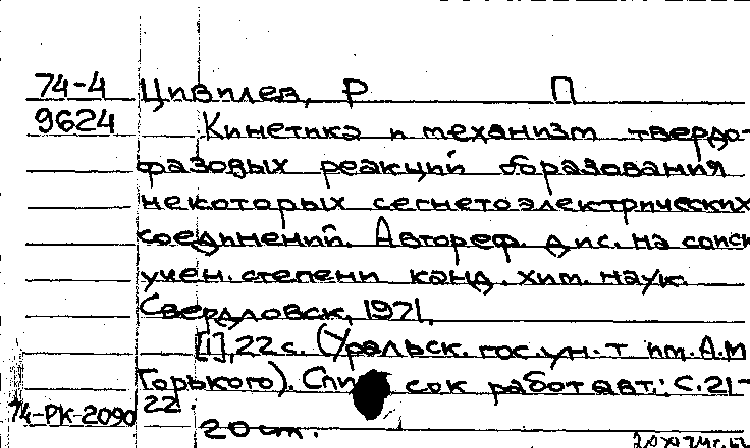 74-4 Цивилев, Р П
9624 Кинетика и механизм твердо-
фазовых реакций образования
некоторых сегнетоэлектрических
соединений. Автореф. дис. на соиск
учен. степени канд. хим. наук.
Свердловск, 1971.
[1], 22 с. (Уральск. гос. ун-т им. А.М
Горького). Спи сок работ авт.: с. 21-
74-РК-2090 22.
20 см.